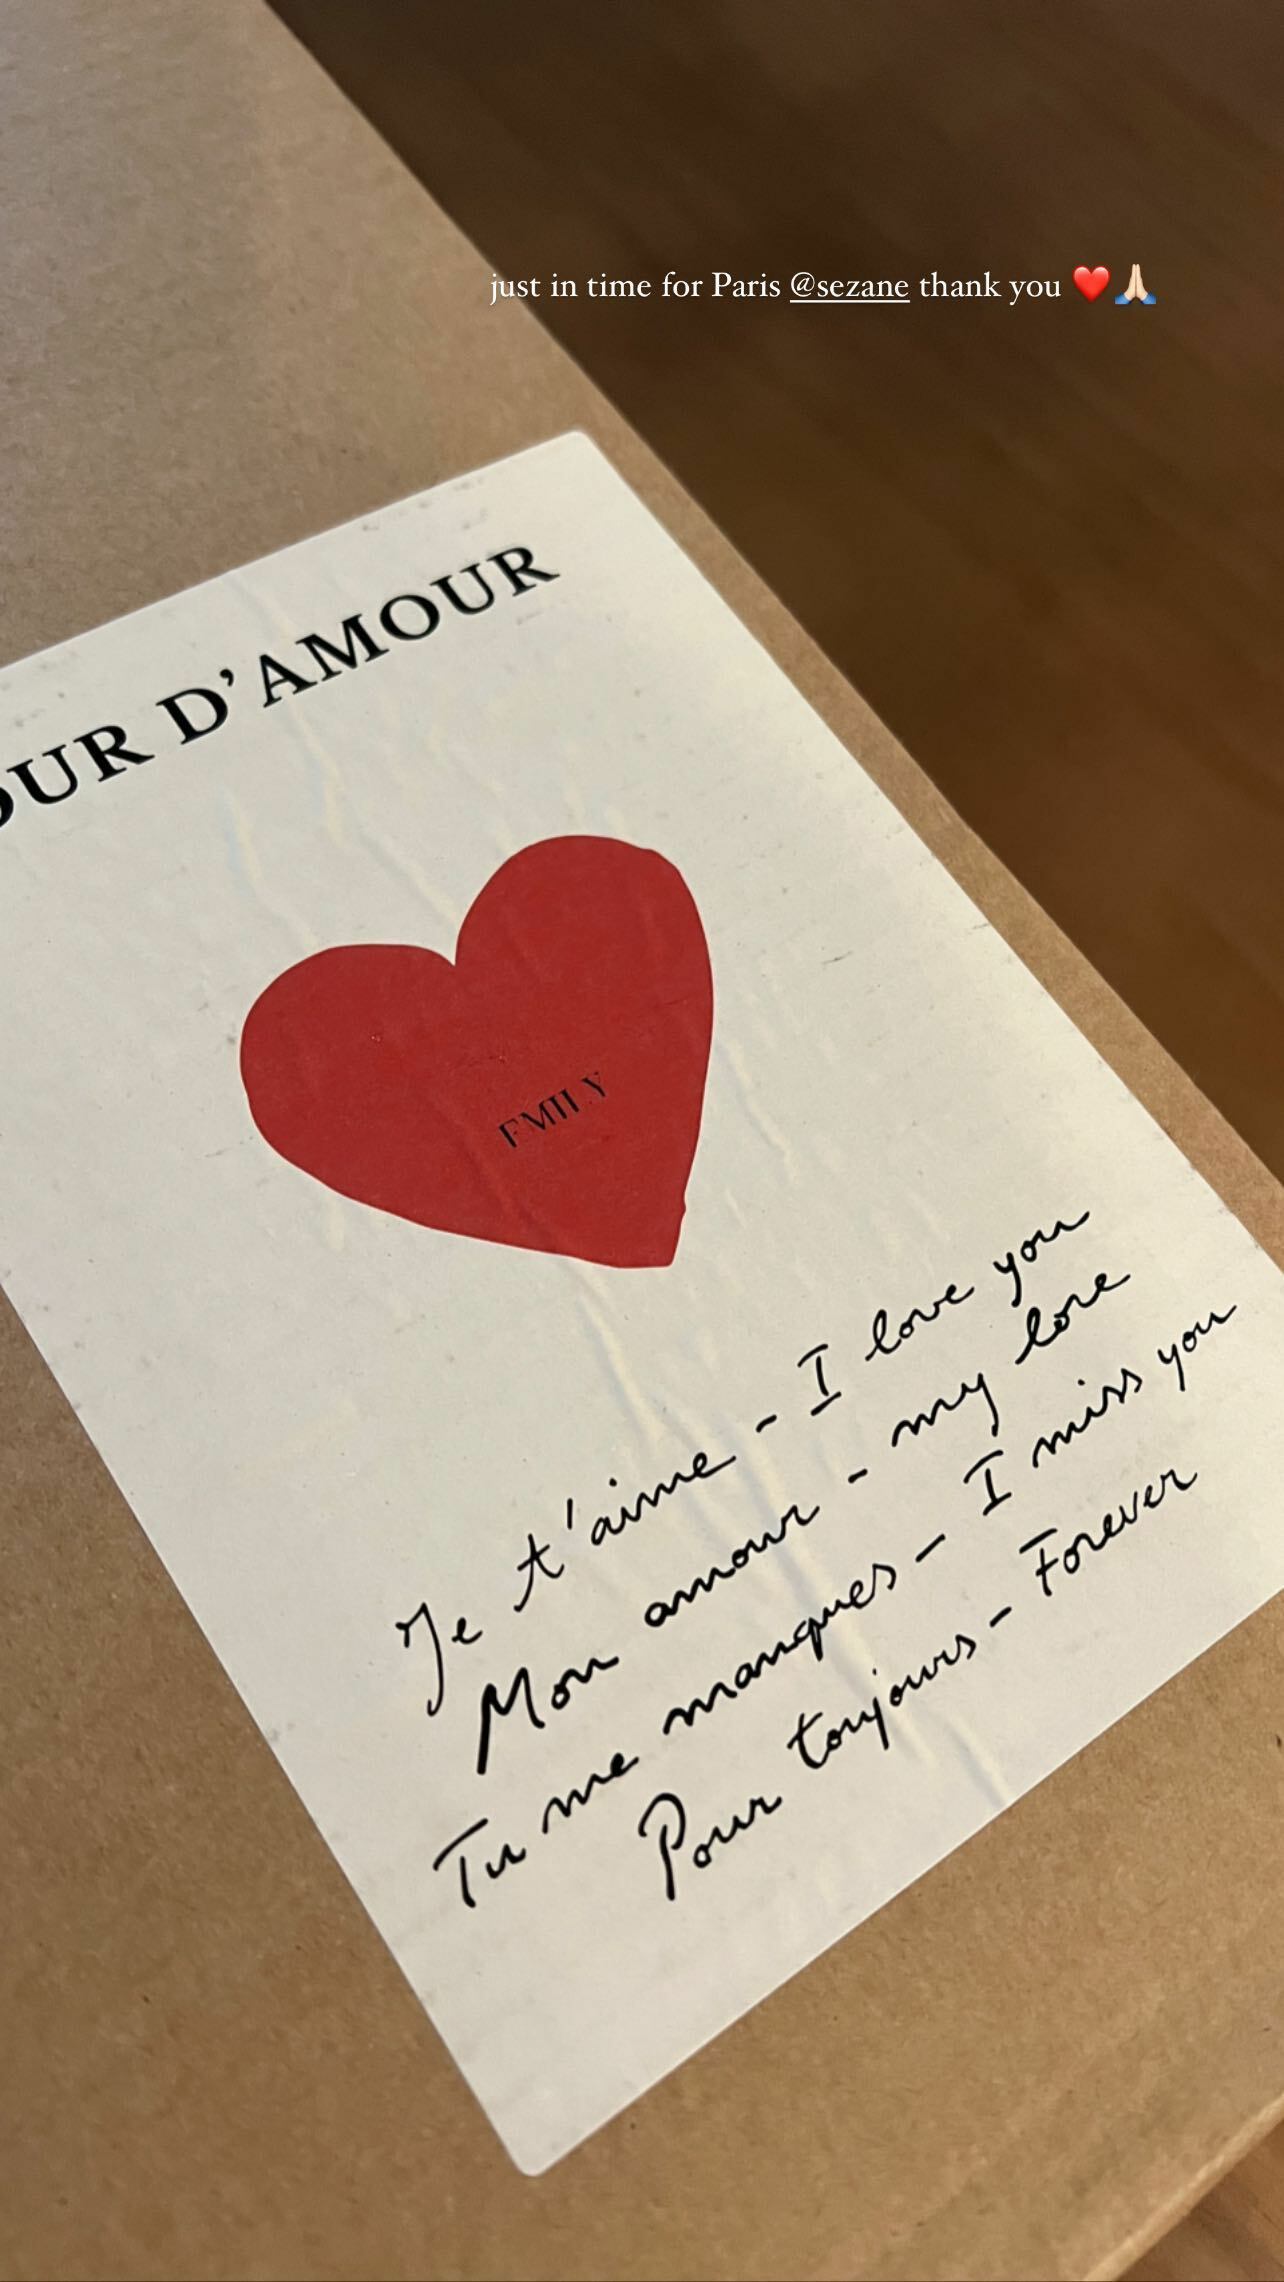 just in time for Paris @sezane thank you ❤️🙏🏻
OUR D'AMOUR
EMILY
Je t'aime - I love you
Mon amour - my love
Tu me manques - I miss you
Pour toujours - Forever